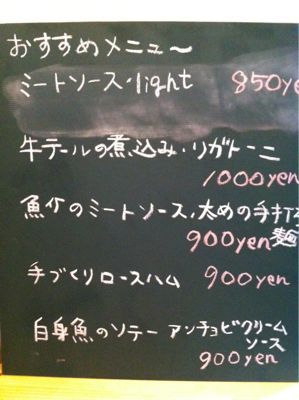 おすすめメニュ〜
ミートソース・light 850ye
牛テールの煮込み・リガトーニ
1000yen
魚介のミートソース、太めの手打ち
900yen 麺
手づくりロースハム 900yen
白身魚のソテー アンチョビクリーム
ソース
900yen